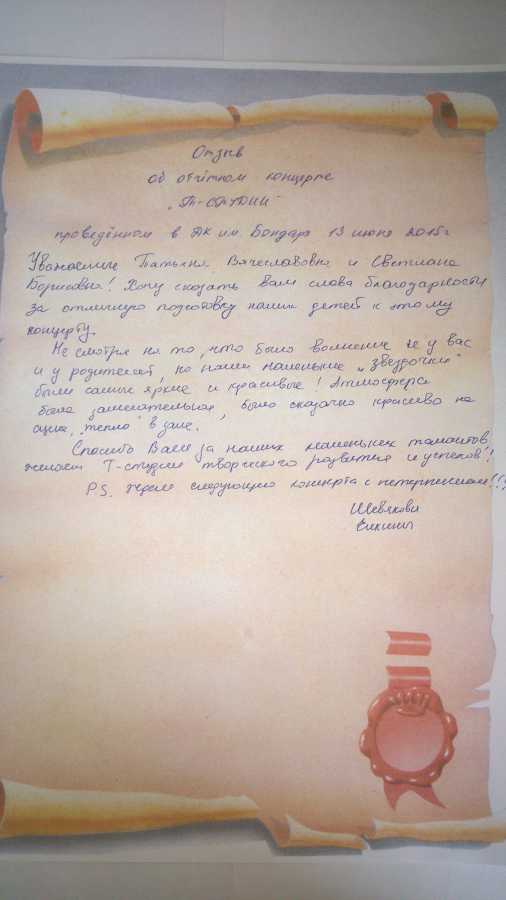 Отзыв
об отчётном концерте
„Т-СТУДИИ"
проведённом в ДК им. Бондаря 13 июня 2015г
Уважаемые Татьяна Вячеславовна и Светлана
Борисовна! Хочу сказать Вам слова благодарности
за отличную подготовку наших детей к этому
концерту.
Не смотря на то, что было волнение и у вас
и у родителей, но наши маленькие „звездочки"
были самые яркие и красивые! Атмосфера
была замечательная, было сказачно красиво на
сцене, „тепло" в зале.
Спасибо Вам за наших маленьких талантов,
желаем Т-студии творческого развития и успехов!
P.S. Ждем следующего концерта с нетерпением!!!